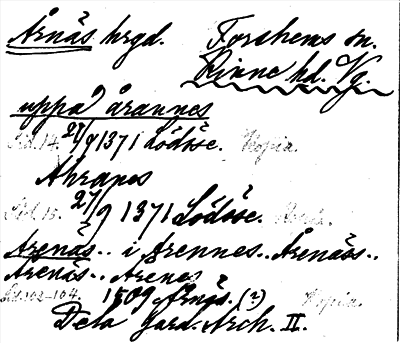 Årnäs hrgd. Forshems sn.
Kinne hd. Vg.
uppa årannes
27/9 1371 Lödöse. Kopia.
Ahranes
27/9 1371 Lödöse. Kopia.
Arenäs.. i Arennes.. Årenäss..
Arenäs.. Arenes
Sid. 103-104. 1509 Årnäs. (?) Kopia.
Dela Gard. Arch. II.